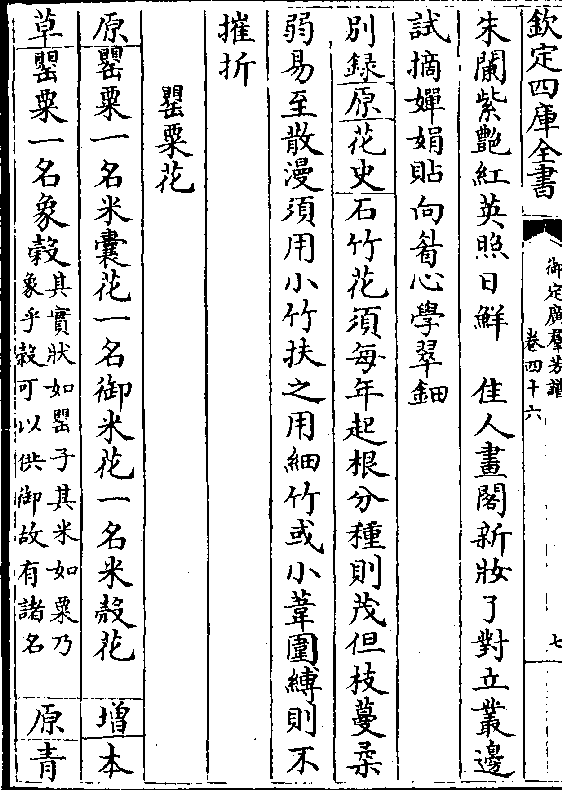 欽定四庫全書
御定廣羣芳譜
卷四十六
七
朱闌紫艷紅英照日鮮　佳人畫閣新妝了對立叢邊
試摘嬋娟貼向眉心學翠鈿
別録原花史石竹花須每年起根分種則茂但枝蔓柔
弱易至散漫須用小竹扶之用細竹或小葦圍縛則不
摧折
罌粟花
原罌粟一名米囊花一名御米花一名米殼花　增本
草罌粟一名象穀其實狀如罌子其米如粟乃象乎穀可以供御故有諸名　原青